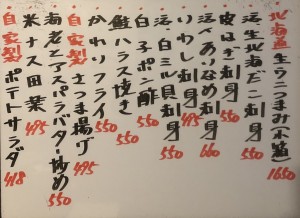 北海道生ウニつまみ(木箱) 1650
活・生北海だこ刺身 550
皮はぎ刺身 550
活〆あいなめ刺身 660
いわし刺身 495
活・白ミル貝刺身 550
白子ポン酢 550
鮭ハラス焼き 550
かわりフライ 550
自家製さつま揚げ 495
海老とアスパラバター炒め 550
米ナス田楽 495
自家製ポテトサラダ 418